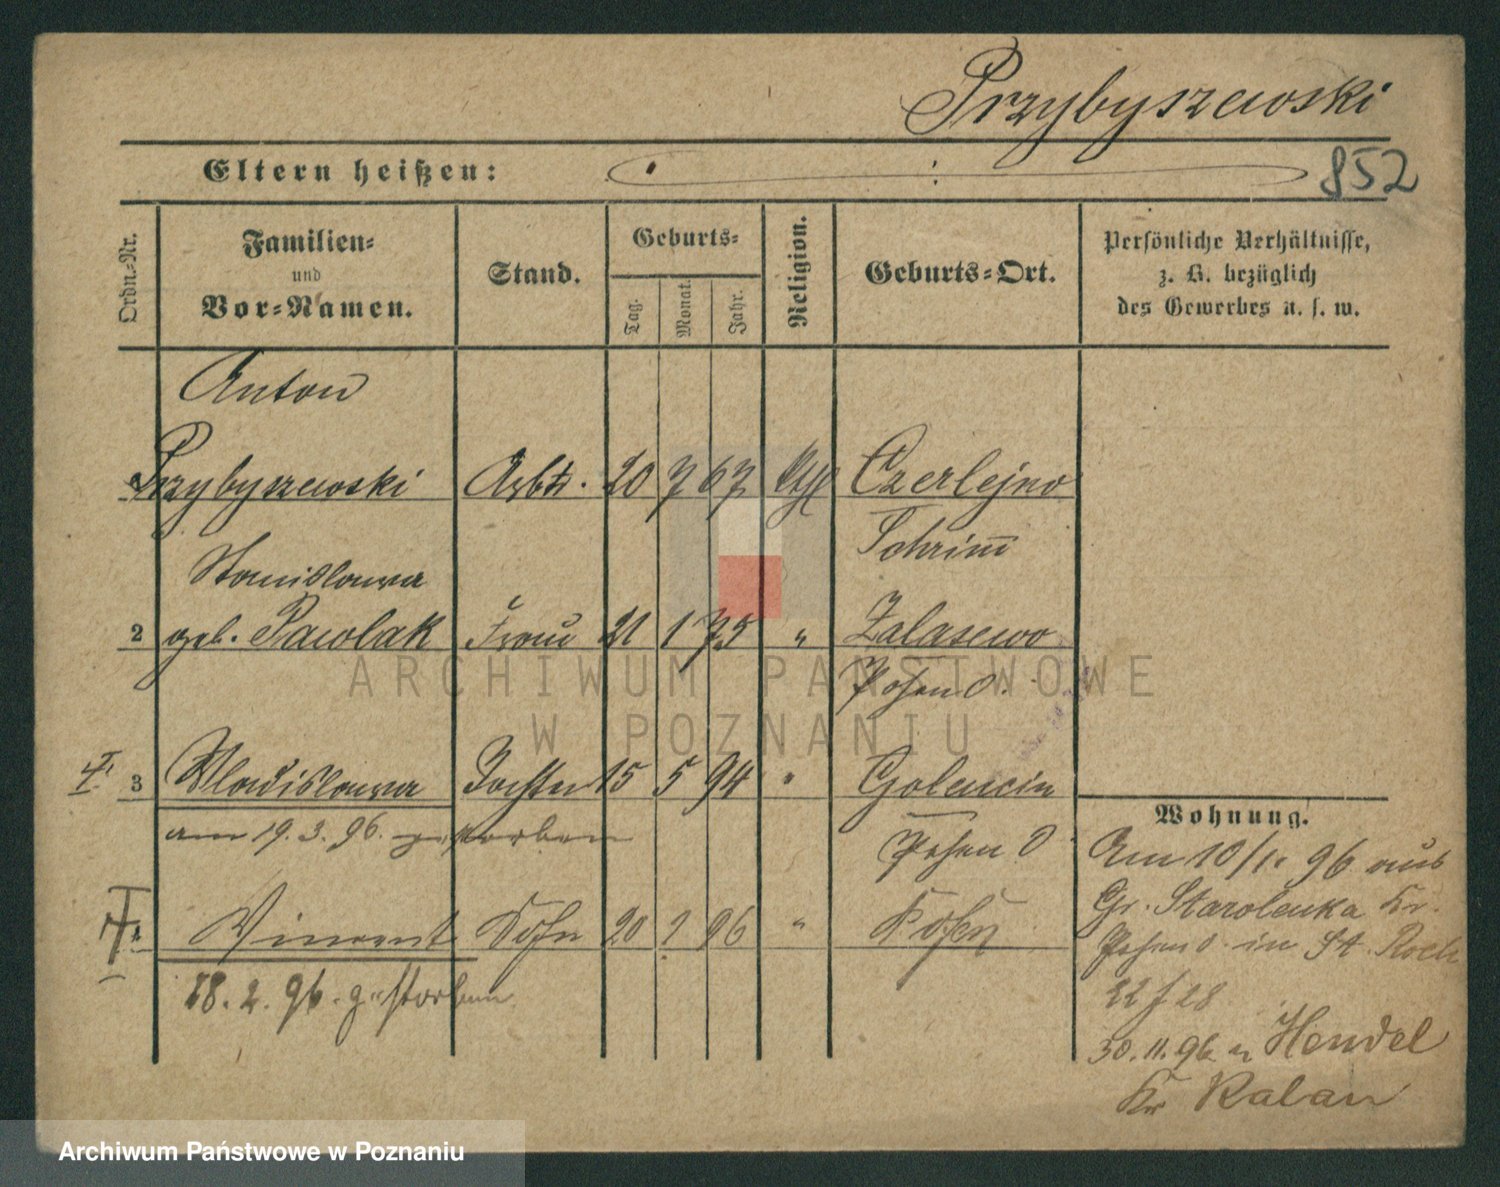 Przybyszewski
Eltern heißen:
852
Ordn.-Nr.
Familien-
und
Vor-Namen.
Stand.
Geburts-
Tag.
Monat.
Jahr.
Religion.
Geburts-Ort.
Persönliche Verhältnisse,
z. B. bezüglich
des Gewerbes u. s. w.
Anton
Przybyszewski Arbtr. 20 7 67 Czerlejno
Schrimm
Stanislawa
2 geb. Pawlak Frau 21 1 75 " Zalasewo
Posen O.
3 Wladislawa Tochter 15 5 94 " Golencin
am 19.3.96. gestorben
Posen O
Vincent Sohn 20 96 " Posen
18.2.96. gestorben
Wohnung.
Am 10/1. 96 aus
Gr. Starolenka Kr.
Posen O. in St. Roch
22 f 28
30.11.96 n Hendel
Kr
ARCHIWUM PAŃSTWOWE
W POZNANIU
Archiwum Państwowe w Poznaniu